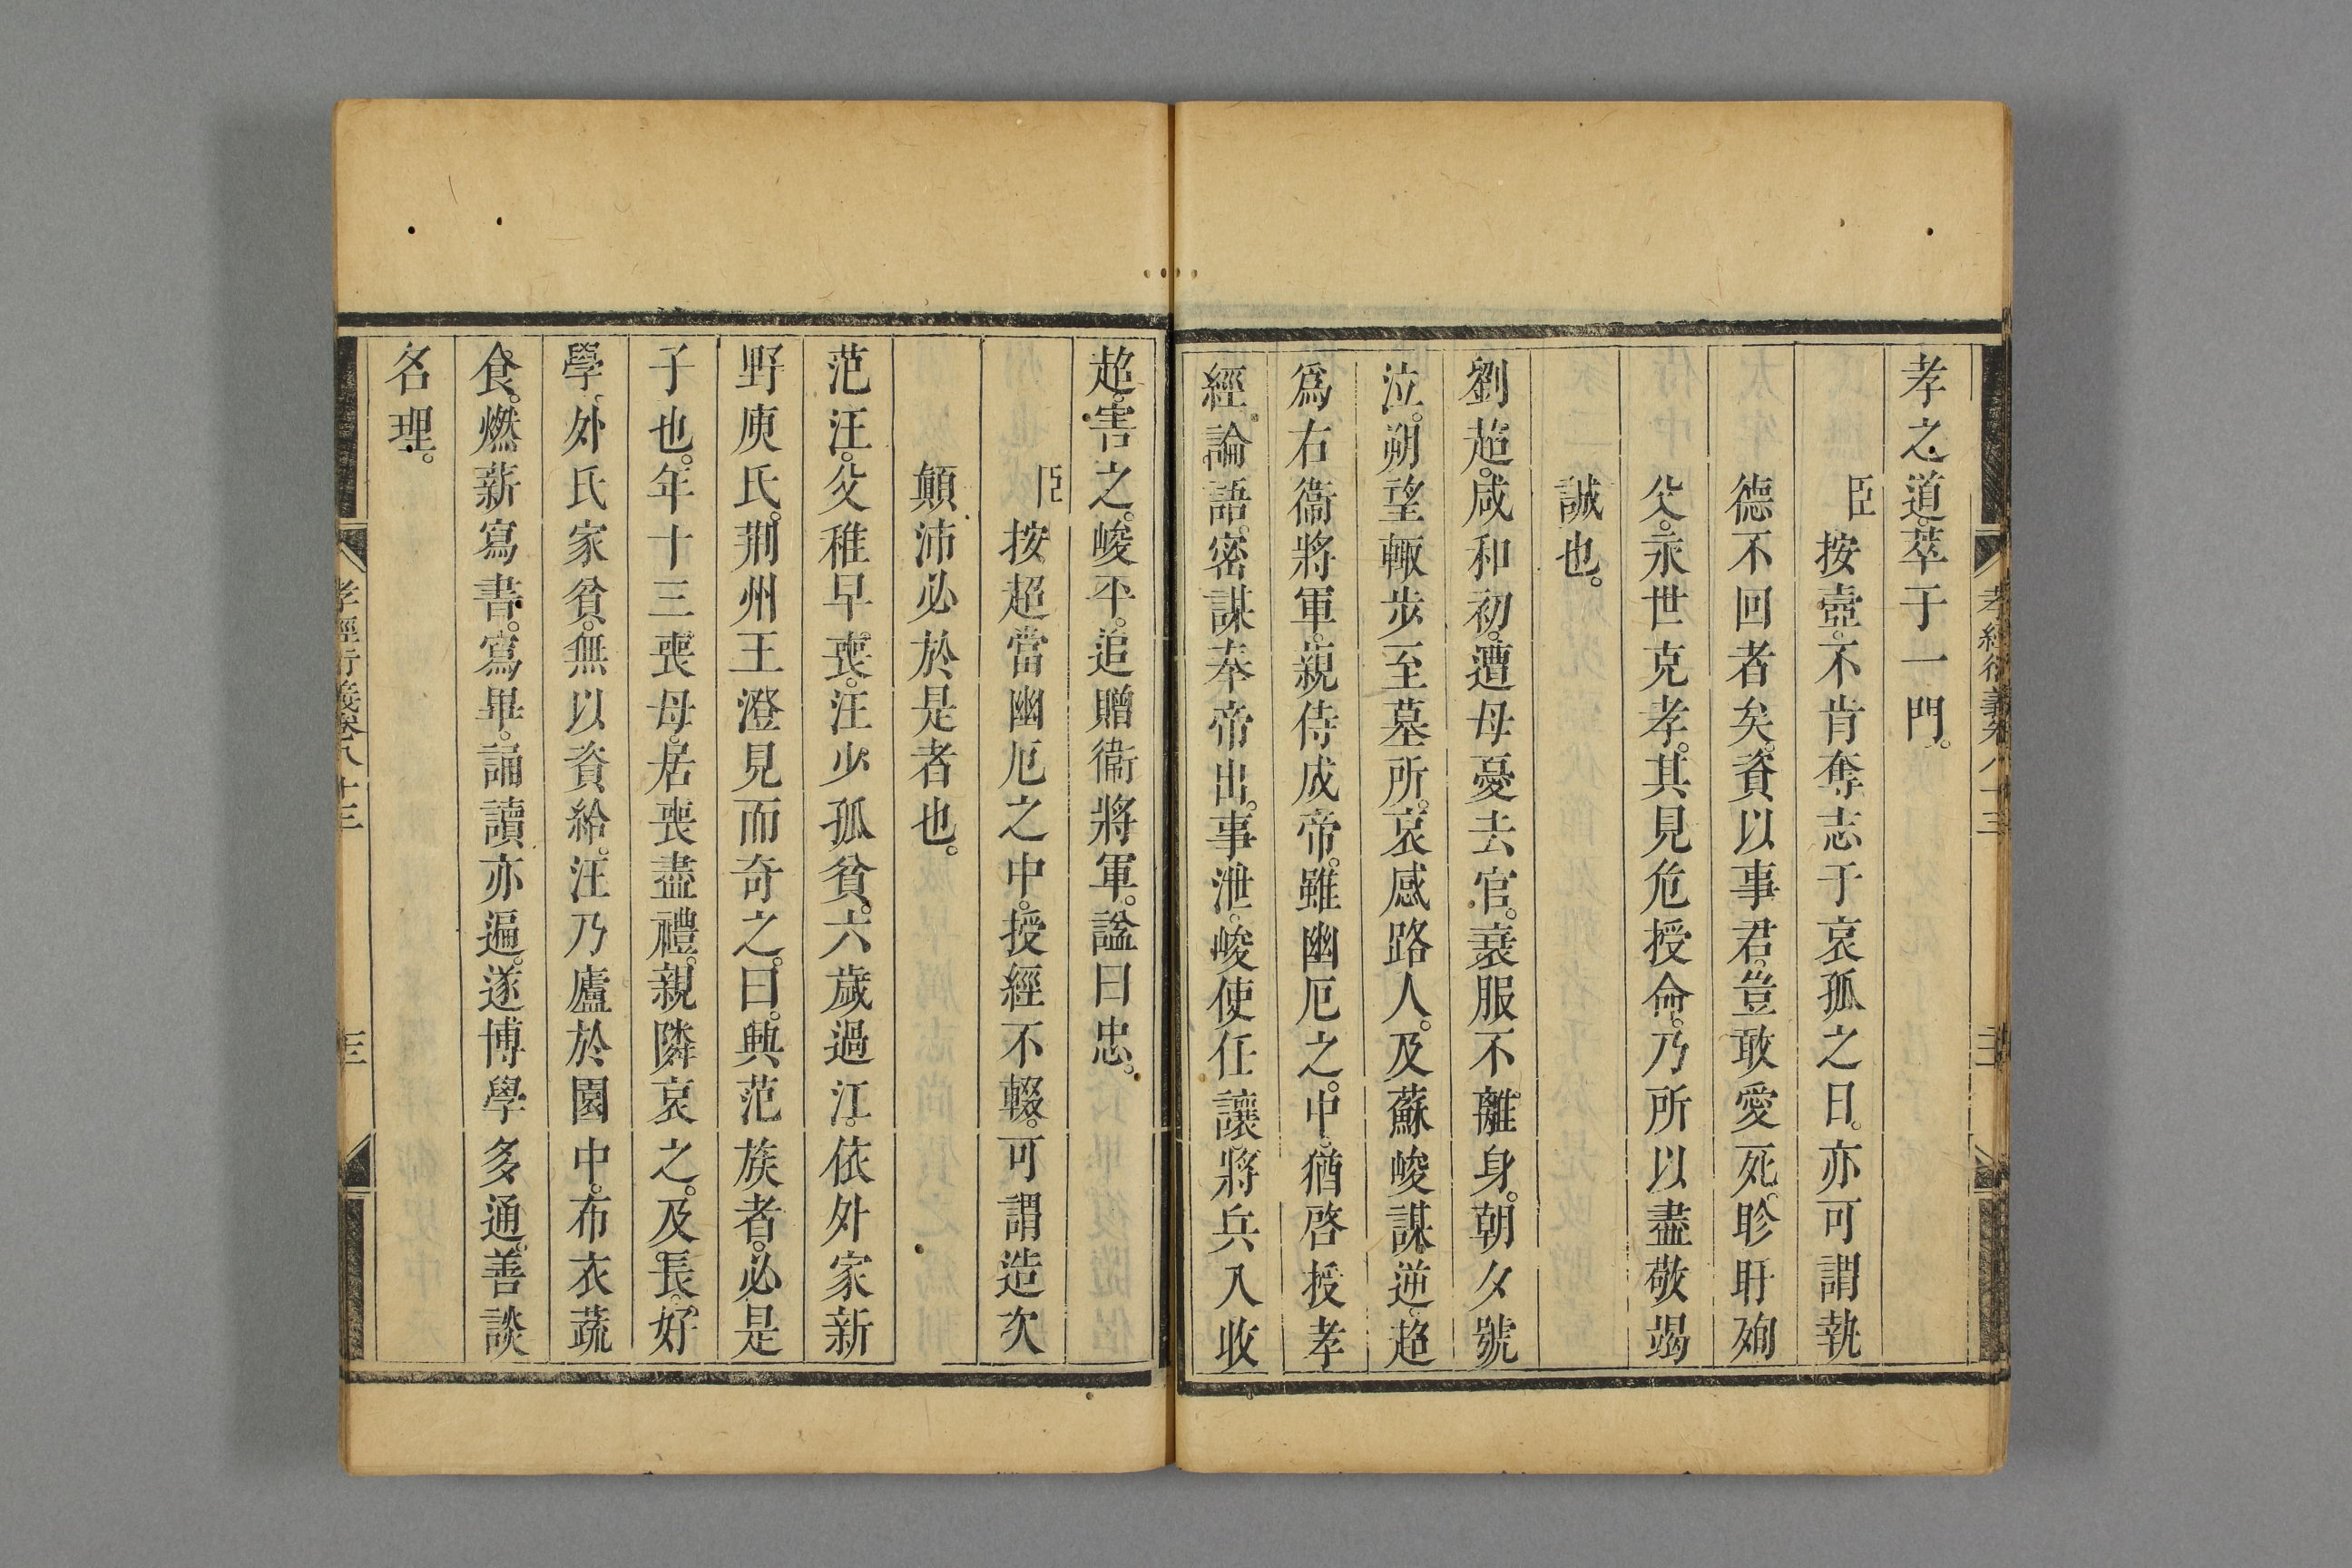 孝經衍義卷八十三
孝之道。萃于一門。
臣按壼。不肯奪志于哀孤之日。亦可謂執
德不回者矣。資以事君。豈敢愛死。眕盱殉
父。永世克孝。其見危授命。乃所以盡敬竭
誠也。
劉超。咸和初。遭母憂去官。衰服不離身。朝夕號
泣。朔望輙步至墓所。哀感路人。及蘇峻謀逆。超
爲右衞將軍。親侍成帝。雖幽厄之。中。猶啓授孝
經論語。密謀奉帝出。事泄。峻使任讓將兵入收
超。害之。峻平。追贈衞將軍。諡曰忠。
臣按超當幽厄之中。授經不輟。可謂造次
顛沛必於是者也。
范汪。父稚早喪。汪少孤貧。六歲過江。依外家新
野庾氏。荆州王澄見而奇之。曰。興范族者。必是
子也。年十三喪母。居喪盡禮。親隣哀之。及長。好
學。外氏家貧。無以資給。汪乃廬於園中。布衣蔬
食。燃薪寫書。寫畢。誦讀亦遍。遂博學多通。善談
名理。
孝經衍義卷八十三